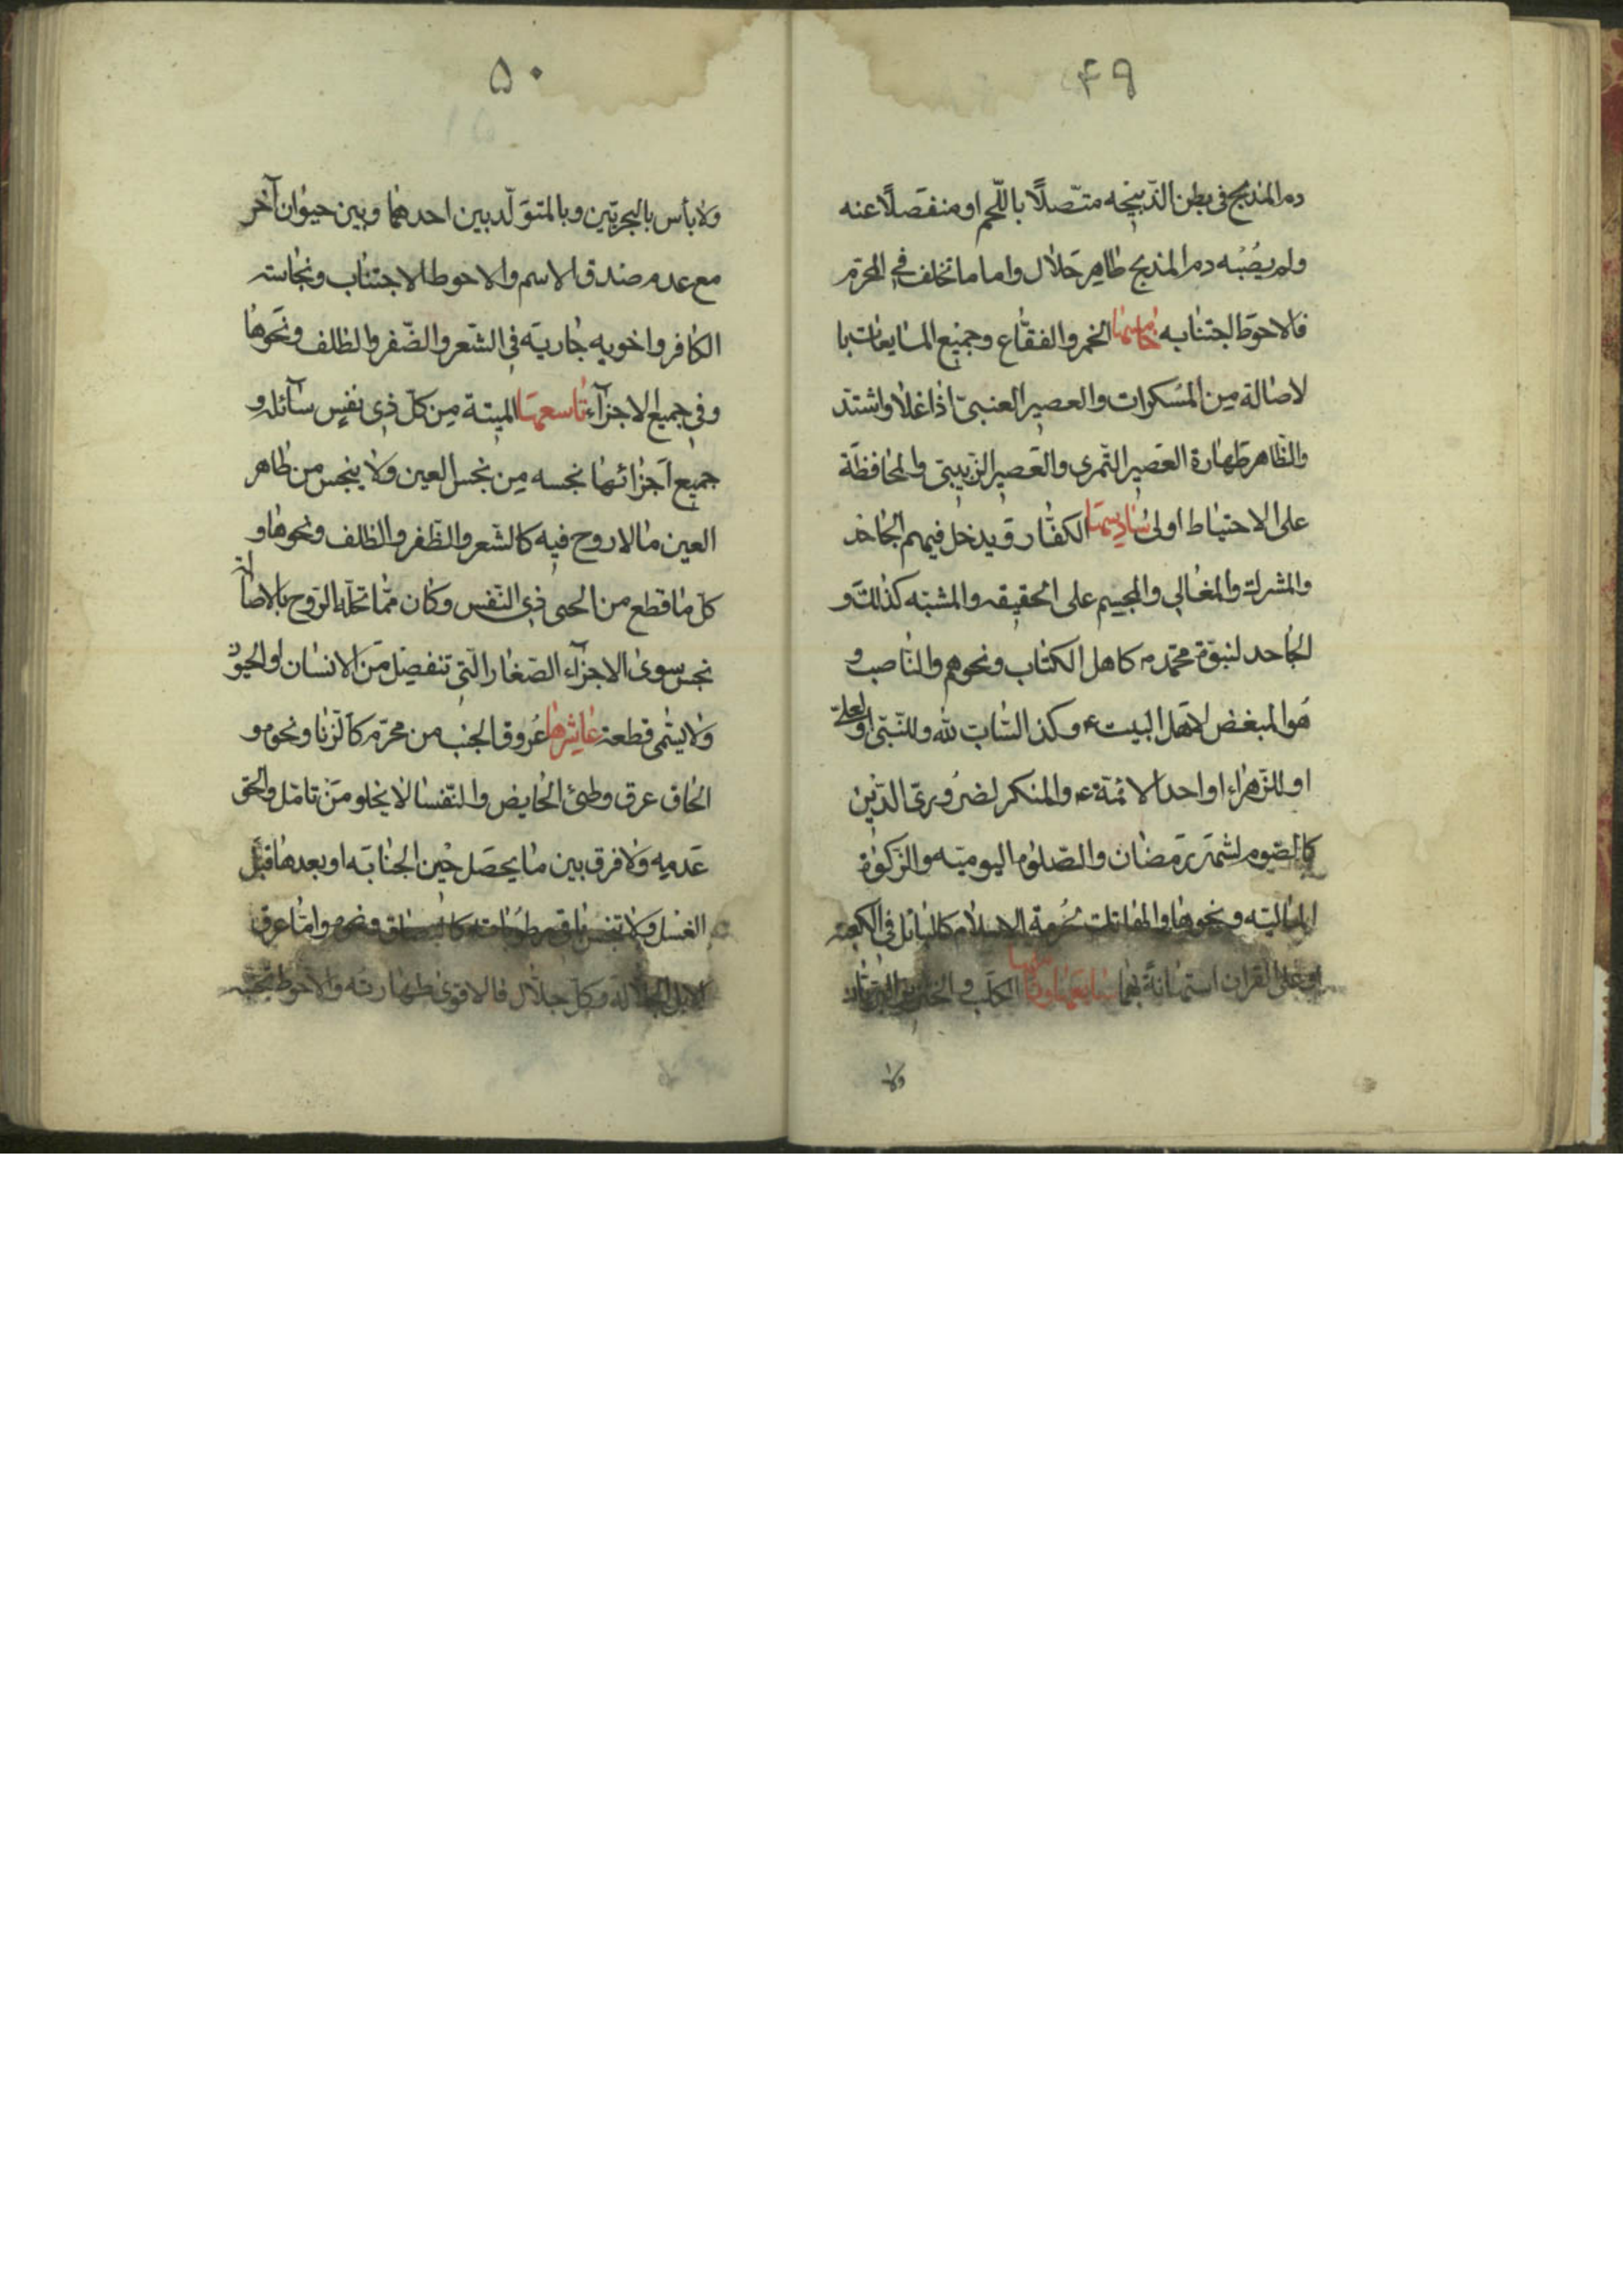 ۴۹
دم المذبح فی بطن الذبیحه متّصلاً باللّحم او منفصلاً عنه
ولم یصُبْه دم المذبح طاهر حلال واما ما تخلف فی المحرّم
فالاحوط اجتنابه خامسها الخمر والفقّاع وجمیع المایعات با
لاصالة من المسکرات والعصیر العنبیّ اذا غلا واشتد
والظّاهر طهارة العصیر التّمری والعصیر الزّبیبی والمحافظة
علی الاحتیاط اولی سادسها الکفّار ویدخل فیهم الجاحد
والمشرك والمغالی والمجسم علی الحقیقه والمشبّه کذلك و
الجاحد لنبوّة محمّد ص کاهل الکتاب ونحوهم والناصب و
هُو المبغض لاهل البیت ع وکذا السّاب لله وللنّبی او لعلیّ
او للزّهراء او احد الائمّة ع والمنکر لضروریّ الدّین
کالصّوم لشهر رمضان والصّلوة الیومیّه والزّکوة
المالیّه ونحوها والهاتك لحُرمة الاسلام کالبائل فی الکعبه
او علی القران استهانةً بهما سابعها وثامنها الکلب والخنزیر البرّیّان
ولا
۵۰
ولا بأس بالبحریّین وبالمتولّد بین احدهما وبین حیوان آخر
مع عدم صدق الاسم والاحوط الاجتناب ونجاسته
الکافر واخویه جاریة فی الشّعر والضّفر والظلف ونحوها
وفی جمیع الاجزآء تاسعها المیتة من کلّ ذی نفسٍ سآئله و
جمیع اجزائها نجسه من نجس العین ولا ینجس من طاهر
العین مالا روح فیه کالشّعر والظّفر والظلف ونحوها و
کلّ ما قطع من الحی ذی النّفس وکان ممّا تحلّه الرّوح بالاصالة
نجس سوی الاجزآء الصّغار الّتی تنفصل من الانسان او الحیوان
ولا یسمی قطعة عاشرها عُروق الجنب من محرّم کالزّنا ونحوه و
الحاق عرق وطئ الحایض والنّفسا لا یخلو من تامّل والحق
عدمه ولا فرق بین ما یحصل حین الجنابة او بعدها قبل
الغسل ولا تنجس باقی رطوباته کالبصاق ونحوه وامّا عرق
الابل الجلّالة وکلّ جلّال فالاقوی طهارته والاحوط تجنّبه